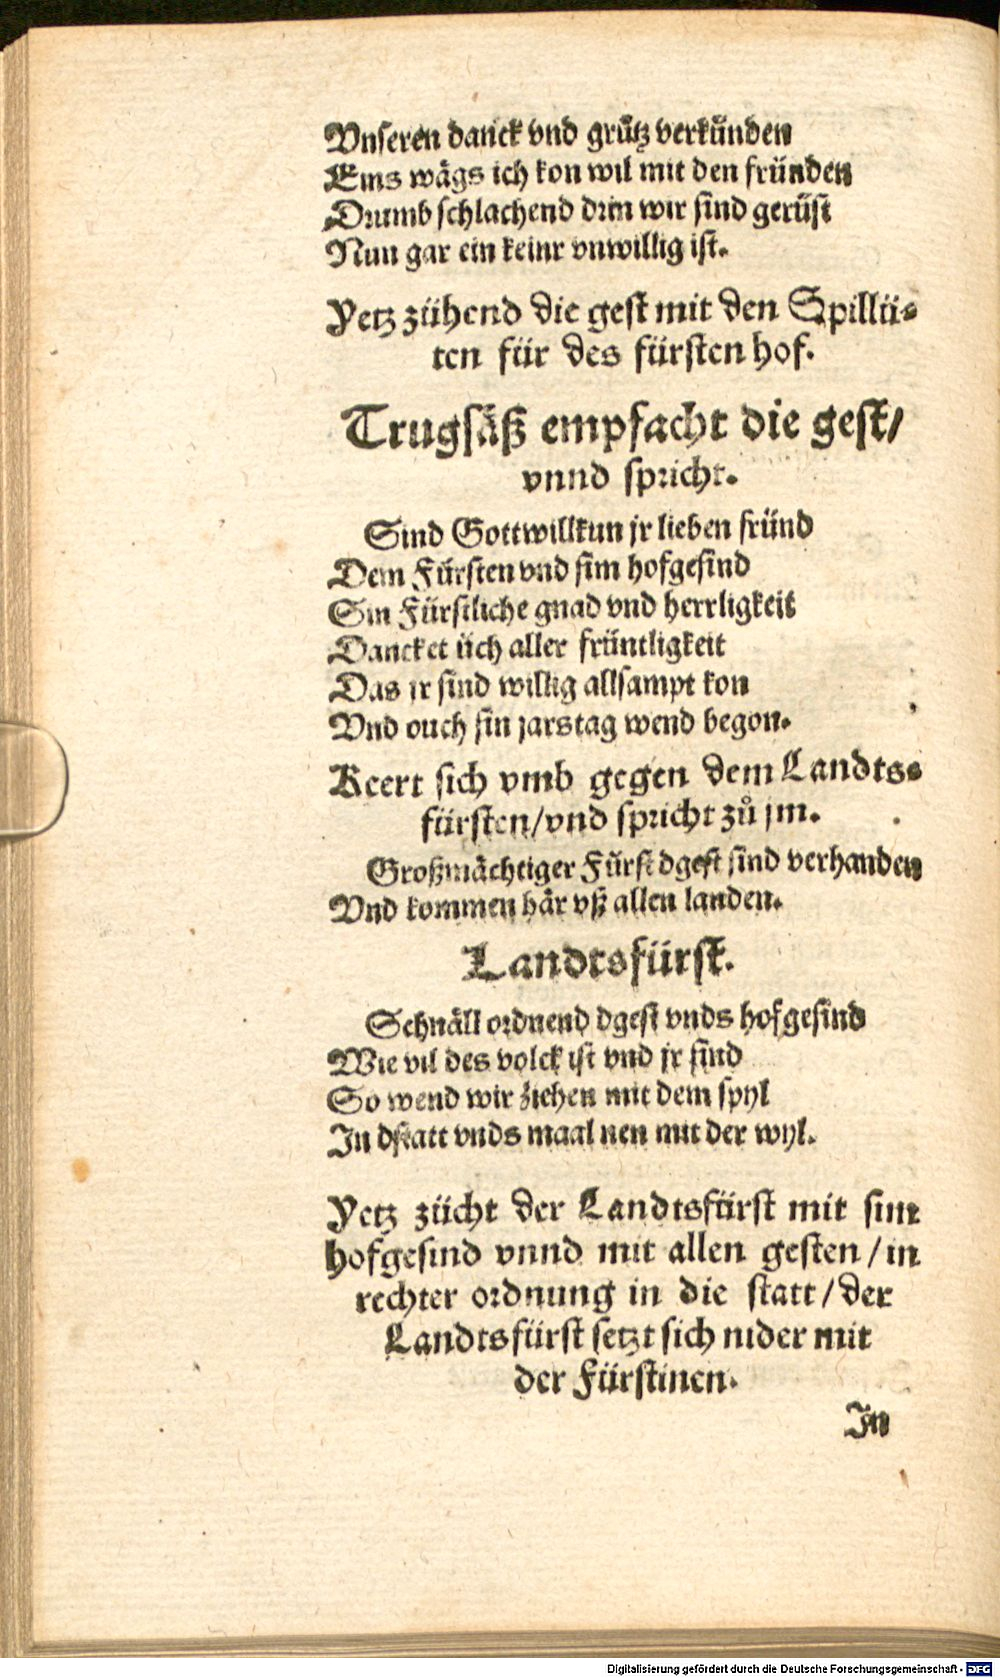 Vnseren danck vnd grůtz verkünden
Eins wägs ich kon wil mit den fründen
Drumb schlachend drin wir sind gerüst
Nun gar ein keinr vnwillig ist.
Yetz zühend die gest mit den Spillü-
ten für des fürsten hof.
Trugsäß empfacht die gest/
vnnd spricht.
Sind Gottwillkun jr lieben fründ
Dem Fürsten vnd sim hofgesind
Sin Fürstliche gnad vnd herrligkeit
Dancket üch aller früntligkeit
Das jr sind willig allsampt kon
Vnd ouch sin jarstag wend begon.
Keert sich vmb gegen dem Landts-
fürsten/vnd spricht zů jm.
Großmächtiger Fürst dgest sind verhanden
Vnd kommen här vß allen landen.
Landtsfürst.
Schnäll ordnend dgest vnds hofgesind
Wie vil des volck ist vnd jr sind
So wend wir ziehen mit dem spyl
In dstatt vnds maal nen mit der wyl.
Yetz zücht der Landtsfürst mit sim
hofgesind vnnd mit allen gesten/in
rechter ordnung in die statt/der
Landtsfürst setzt sich nider mit
der Fürstinen.
In
Digitalisierung gefördert durch die Deutsche Forschungsgemeinschaft - DFG